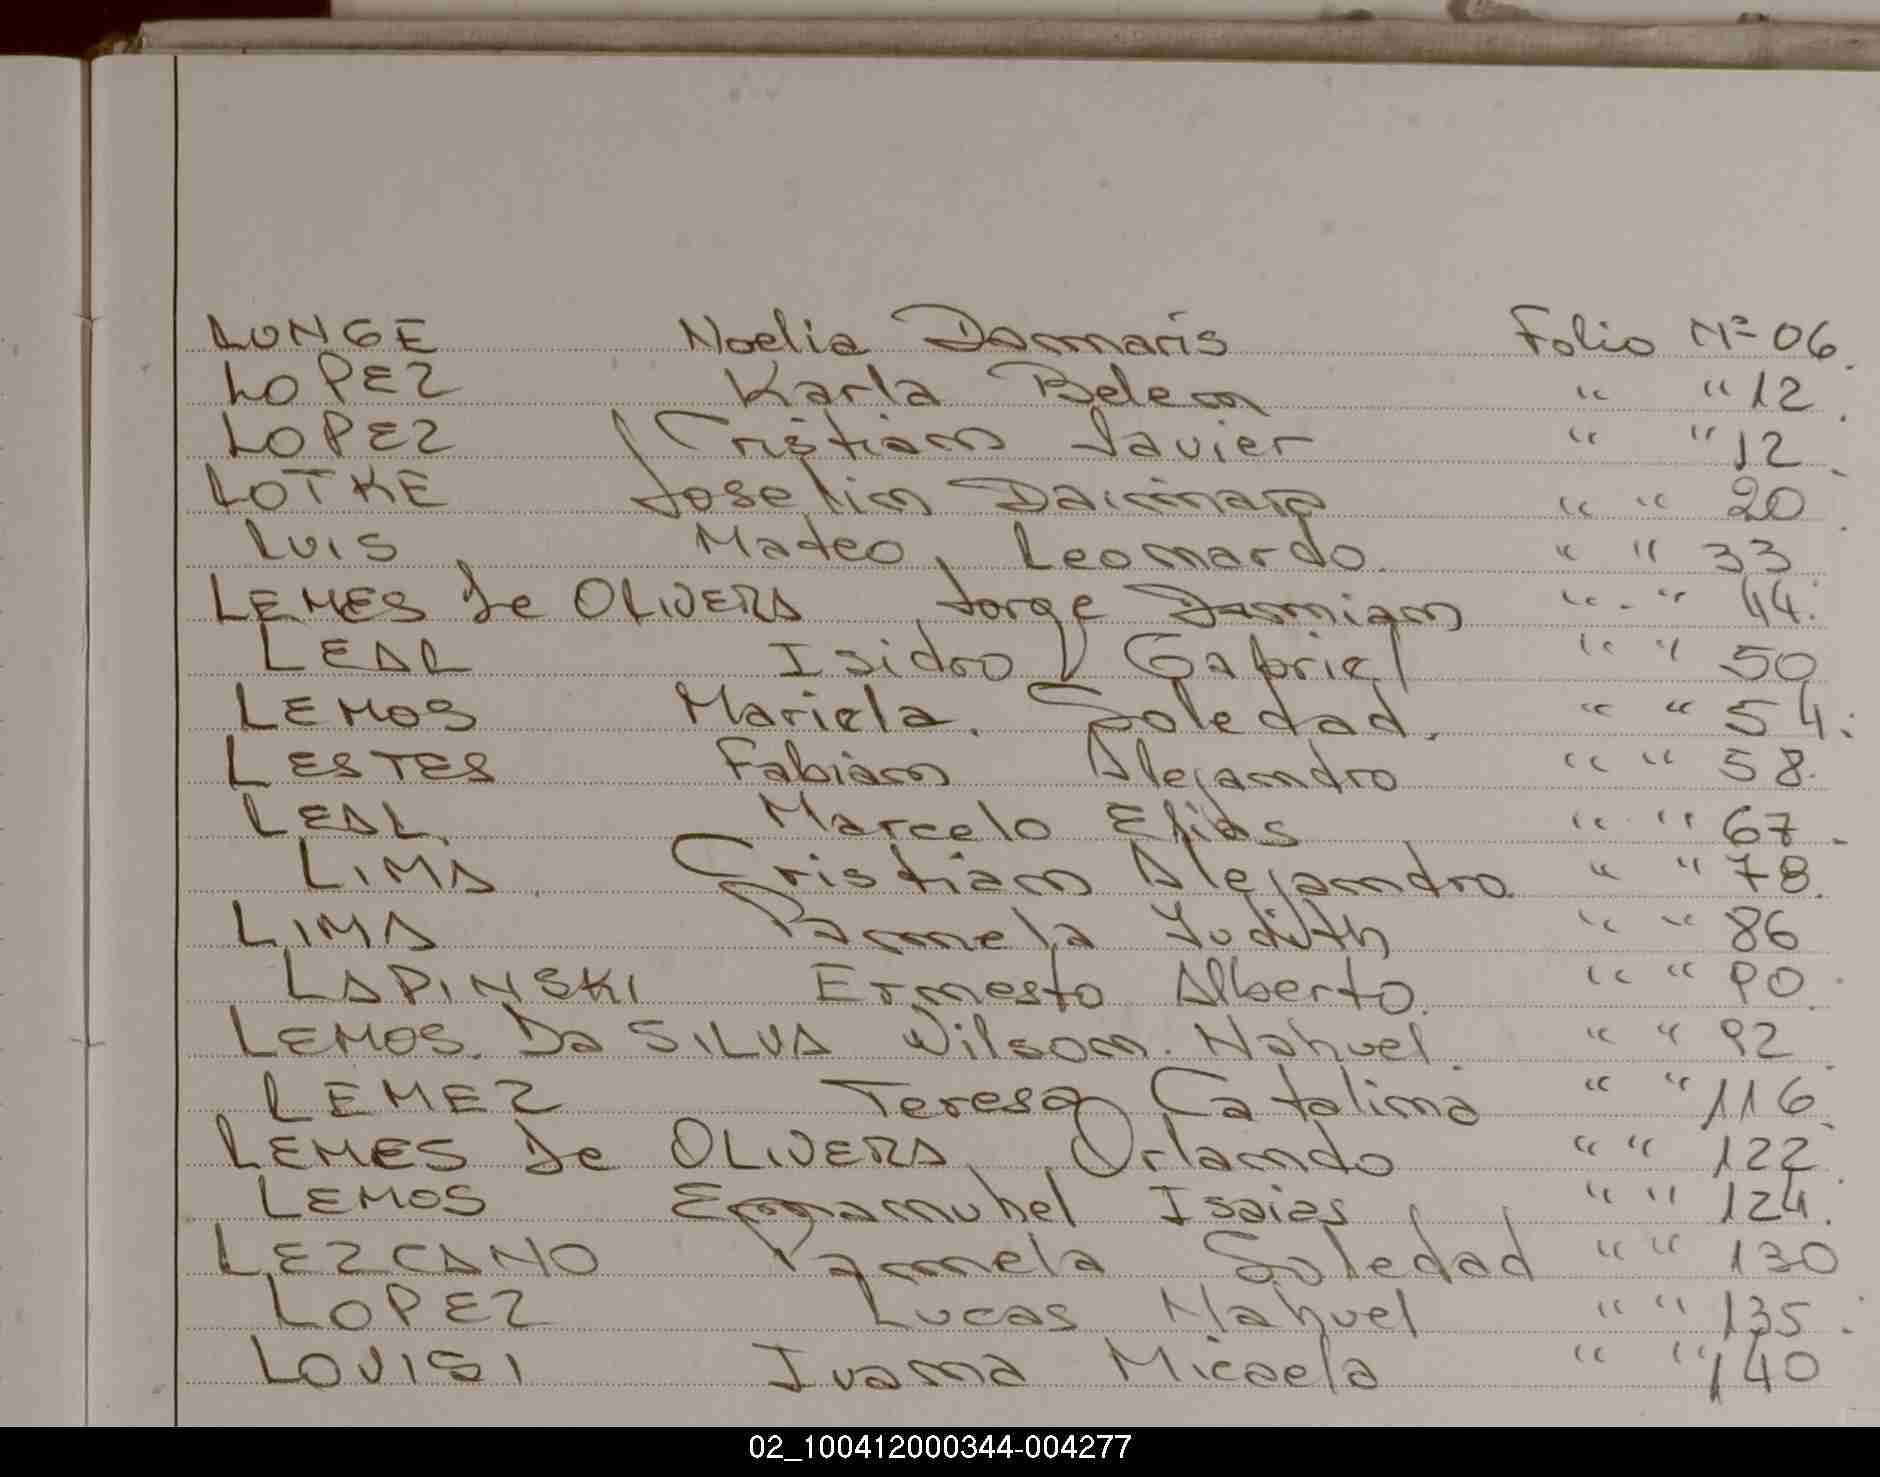 LUNGE Noelia Damaris Folio Nº 06.
LOPEZ Karla Belen " " 12.
LOPEZ Cristian Javier " " 12.
LOTKE Joselin Daiana " " 20.
LUIS Mateo Leonardo. " " 33
LEMES de OLIVERA Jorge Damian " " 44.
LEAL Isidro Gabriel " " 50
LEMOS Mariela. Soledad. " " 54.
LESTES Fabian Alejandro " " 58.
LEAL. Marcelo Elias " " 67.
LIMA. Cristian Alejandro. " " 78.
LIMA Pamela Judith " " 86
LAPINSKI Ernesto Alberto. " " 90.
LEMOS. Da SILVA Wilson. Nahuel. " " 92.
LEMEZ Teresa Catalina " " 116.
LEMES de OLIVERA Orlando " " 122.
LEMOS Emmanuhel Isaias " " 124.
LEZCANO Pamela Soledad " " 130
LOPEZ Lucas Nahuel " " 135.
LOVISI Ivana Micaela " " 140
02_100412000344-004277